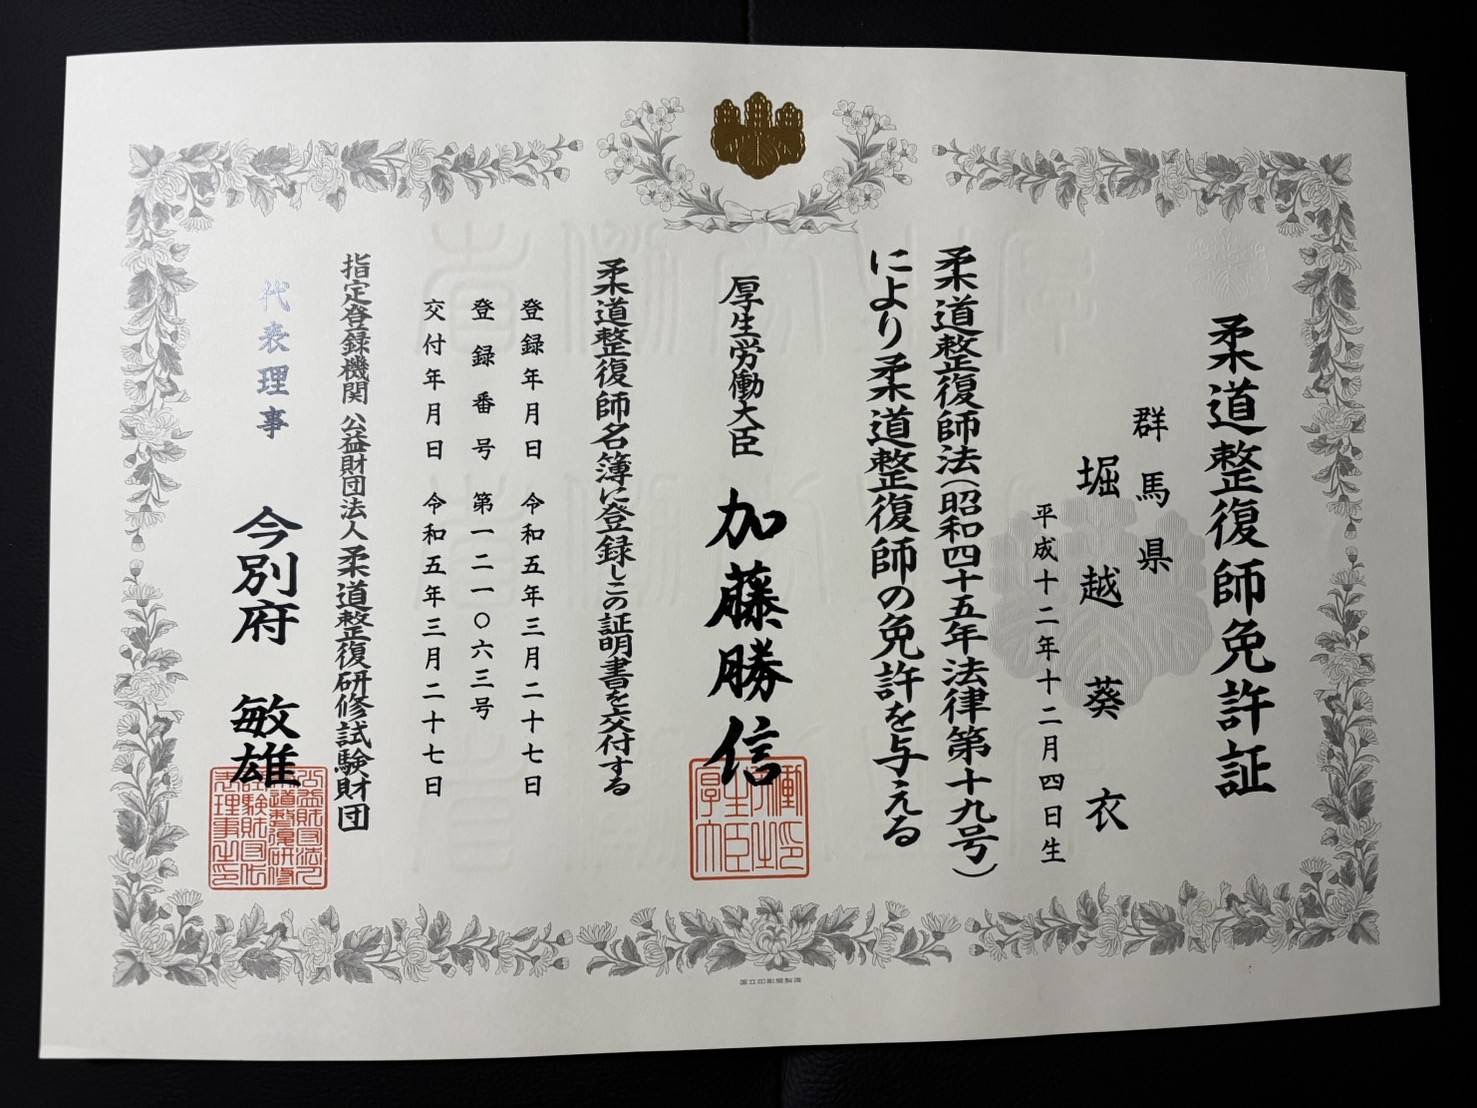 柔道整復師免許証
群馬県
堀越葵衣
平成十二年十二月四日生
柔道整復師法（昭和四十五年法律第十九号）
により柔道整復師の免許を与える
厚生労働大臣 加藤勝信
柔道整復師名簿に登録しこの証明書を交付する
登録年月日 令和五年三月二十七日
登録番号 第一二一〇六三号
交付年月日 令和五年三月二十七日
指定登録機関 公益財団法人 柔道整復研修試験財団
代表理事 今別府 敏雄
国立印刷局製造